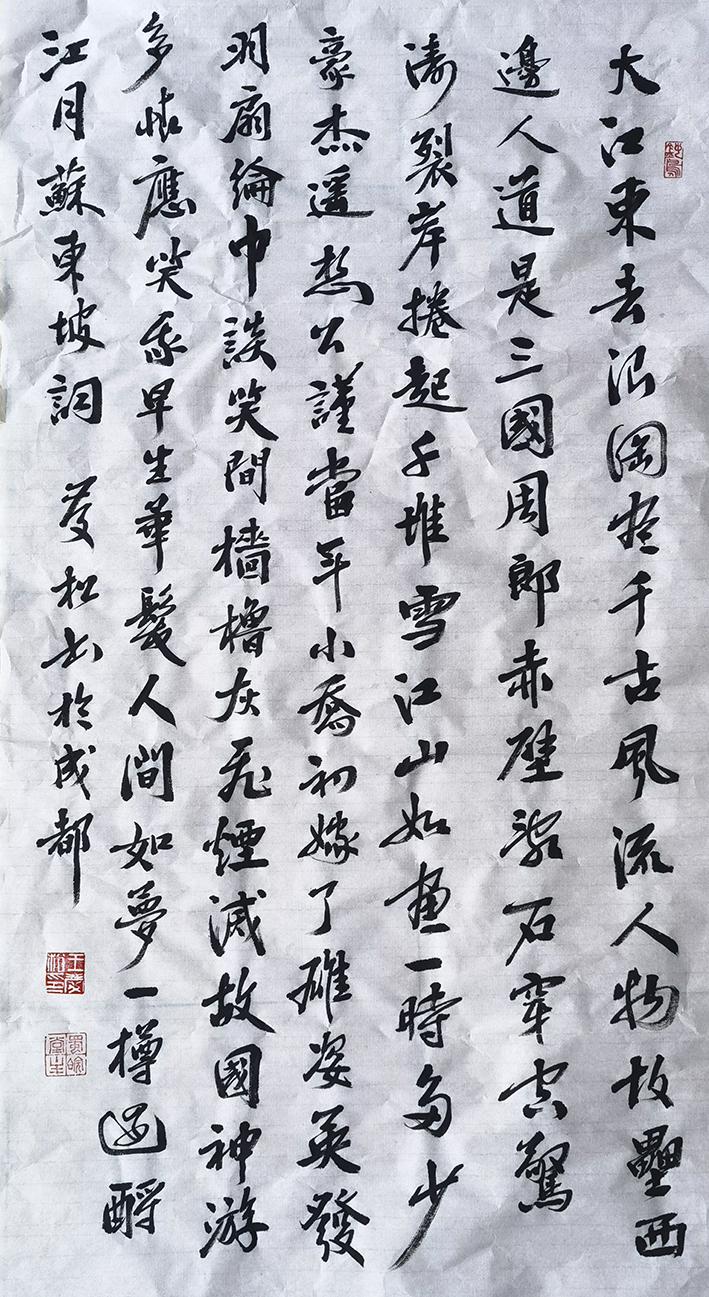 大江東去浪淘盡千古風流人物故壘西
邊人道是三國周郎赤壁亂石穿空驚
濤裂岸捲起千堆雪江山如畫一時多少
豪杰遥想公謹當年小喬初嫁了雄姿英發
羽扇綸巾談笑間檣櫓灰飛煙滅故國神游
多情應笑我早生華髮人間如夢一樽還酹
江月蘇東坡詞 慶松书於成都
王慶松印